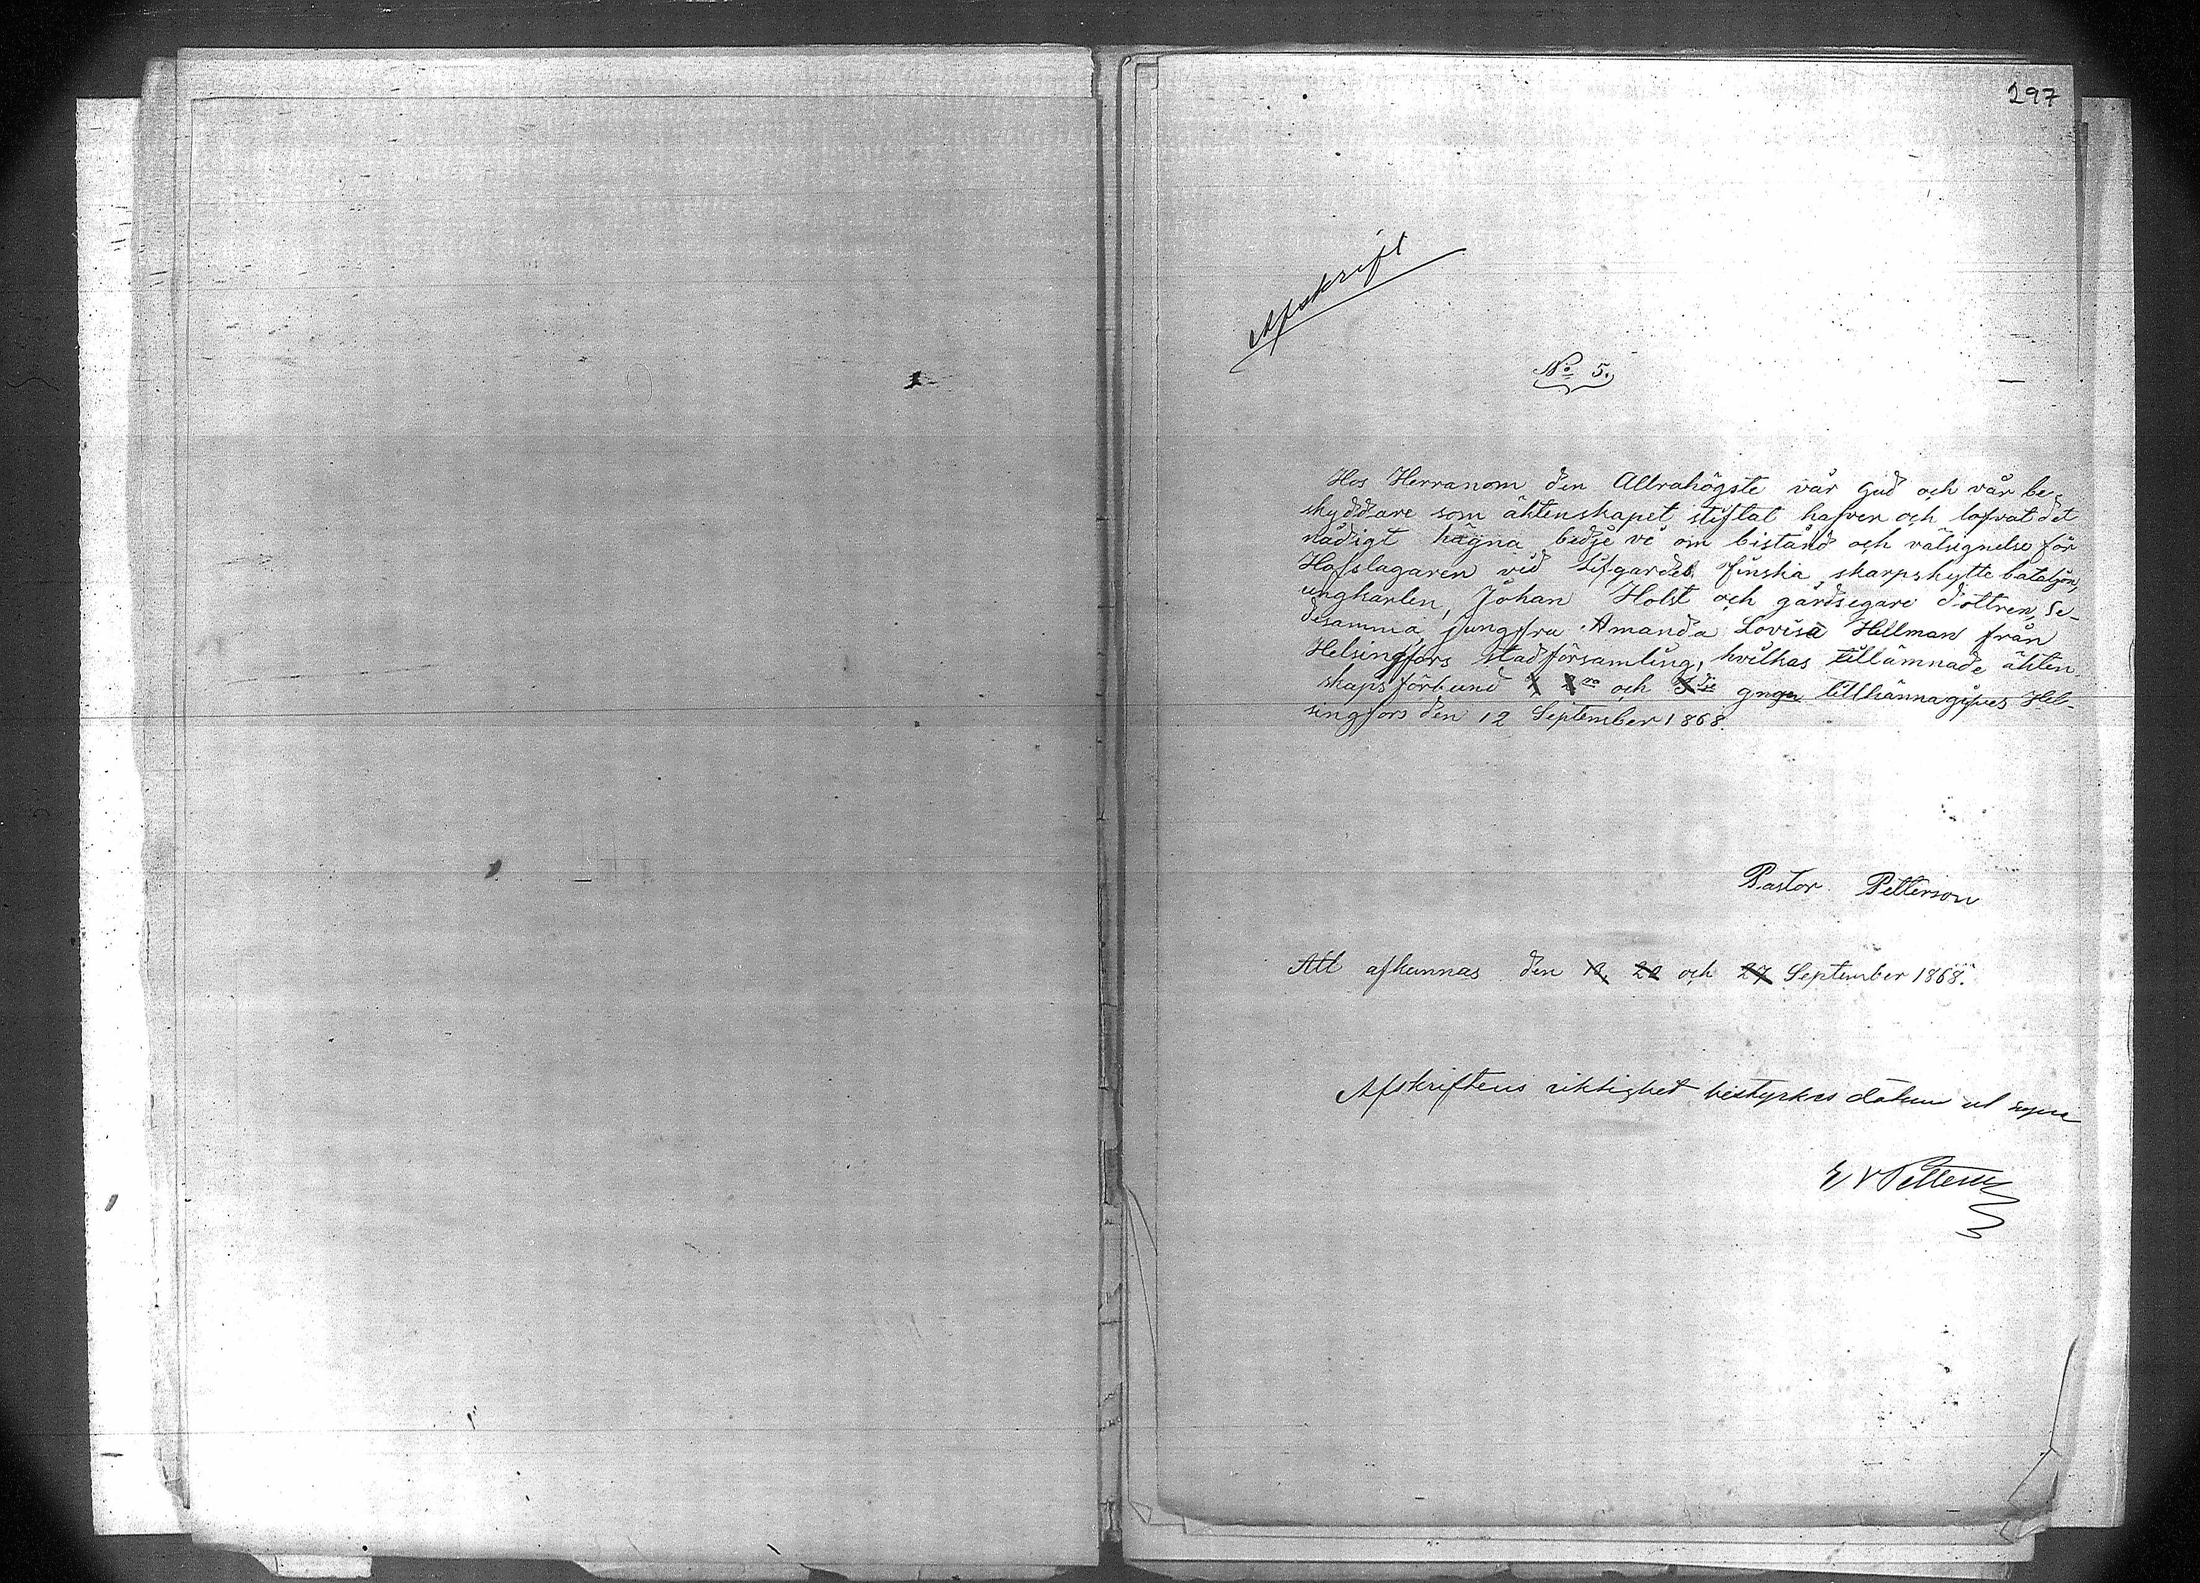 297
Afskrift
No 5.
Hos Herranom den Allrahögste vår Gud och vår be-
skyddare som äktenskapet stiftat hafver och lofvat det
nådigt hägna bedje vi om bistånd och välsignelse för
Hofslagaren vid Lifgardets finska skarpskytte bataljon,
ungkarlen, Johan Holst och gårdsegare dottren, Se-
desamma jungfru Amanda Lovisa Hellman från
Helsingfors stadförsamling, hvilkas tillämnade äkten
skapsförbund 1 2ra och 3dje gngn tillkännagifves Hel-
singfors den 12 September 1868.
Pastor Petterson
Att afkunnas den 13 20 och 27 September 1868.
Afskriftens riktighet bestyrkes datum ut supra
E V Petterson